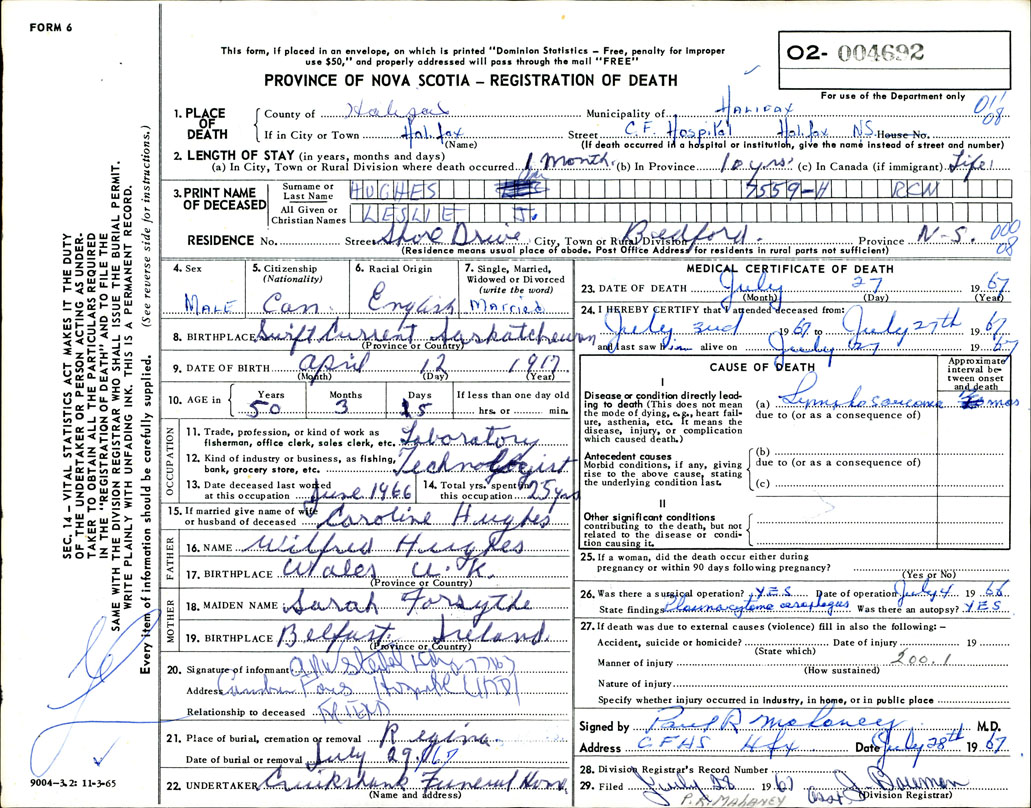 FORM 6
This form, if placed in an envelope, on which is printed "Dominion Statistics – Free, penalty for improper
use $50," and properly addressed will pass through the mail "FREE"
PROVINCE OF NOVA SCOTIA – REGISTRATION OF DEATH
02- 004692
For use of the Department only
011
08
1. PLACE OF DEATH { County of Halifax Municipality of HALIFAX
If in City or Town Halifax (Name) Street C.F. Hospital Halifax N.S. House No.
(If death occurred in a hospital or institution, give the name instead of street and number)
2. LENGTH OF STAY (in years, months and days)
(a) In City, Town or Rural Division where death occurred 1 Month (b) In Province 10 yrs (c) In Canada (if immigrant) Life
3. PRINT NAME OF DECEASED { Surname or Last Name HUGHES 7559-H RCM
All Given or Christian Names LESLIE J.
RESIDENCE No. Street Shore Drive City, Town or Rural Division Bedford Province N-S. 000
08
(Residence means usual place of abode. Post Office Address for residents in rural parts not sufficient)
4. Sex MALE
5. Citizenship (Nationality) Can.
6. Racial Origin English
7. Single, Married, Widowed or Divorced (write the word) Married
8. BIRTHPLACE Swift Current Saskatchewn
(Province or Country)
9. DATE OF BIRTH April 12 1917
(Month) (Day) (Year)
10. AGE in { Years 50 Months 3 Days 15 If less than one day old hrs. or min.
OCCUPATION
11. Trade, profession, or kind of work as fisherman, office clerk, sales clerk, etc. Laboratory
12. Kind of industry or business, as fishing, bank, grocery store, etc. Technologist
13. Date deceased last worked at this occupation June 1966 14. Total yrs. spent in this occupation 25 yrs
15. If married give name of wife or husband of deceased Caroline Hughes
FATHER
16. NAME Wilfred Hughes
17. BIRTHPLACE Wales U.K.
(Province or Country)
MOTHER
18. MAIDEN NAME Sarah Forsythe
19. BIRTHPLACE Belfast Ireland
(Province or Country)
20. Signature of informant
Address Forces Hospital
Relationship to deceased FRIEND
21. Place of burial, cremation or removal Regina
Date of burial or removal July 29/67
22. UNDERTAKER Cruikshank Funeral Home
(Name and address)
MEDICAL CERTIFICATE OF DEATH
23. DATE OF DEATH July 27 1967
(Month) (Day) (Year)
24. I HEREBY CERTIFY that I attended deceased from:
July 2nd 1967 to July 27th 1967
and last saw him alive on July 27 1967
CAUSE OF DEATH
Approximate interval between onset and death
I
Disease or condition directly leading to death (This does not mean the mode of dying, e.g., heart failure, asthenia, etc. It means the disease, injury, or complication which caused death.)
(a) Lymphosarcoma mos
due to (or as a consequence of)
Antecedent causes
Morbid conditions, if any, giving rise to the above cause, stating the underlying condition last.
(b)
due to (or as a consequence of)
(c)
II
Other significant conditions
contributing to the death, but not related to the disease or condition causing it.
25. If a woman, did the death occur either during pregnancy or within 90 days following pregnancy?
(Yes or No)
26. Was there a surgical operation? YES Date of operation July 4 1966
State findings Plasmacytoma Was there an autopsy? YES
27. If death was due to external causes (violence) fill in also the following: –
Accident, suicide or homicide? Date of injury 19
(State which)
Manner of injury 200.1
(How sustained)
Nature of injury
Specify whether injury occurred in Industry, in home, or in public place
Signed by Paul R Mahaney M.D.
Address CFHS Hfx Date July 28th 1967
28. Division Registrar's Record Number
29. Filed July 28 1967
P.R. MAHANEY
(Division Registrar)
SEC. 14 – VITAL STATISTICS ACT MAKES IT THE DUTY
OF THE UNDERTAKER OR PERSON ACTING AS UNDER-
TAKER TO OBTAIN ALL THE PARTICULARS REQUIRED
IN THE "REGISTRATION OF DEATH" AND TO FILE THE
SAME WITH THE DIVISION REGISTRAR WHO SHALL ISSUE THE BURIAL PERMIT.
WRITE PLAINLY WITH UNFADING INK. THIS IS A PERMANENT RECORD.
Every item of information should be carefully supplied. (See reverse side for instructions.)
9004-3.2: 11-3-65